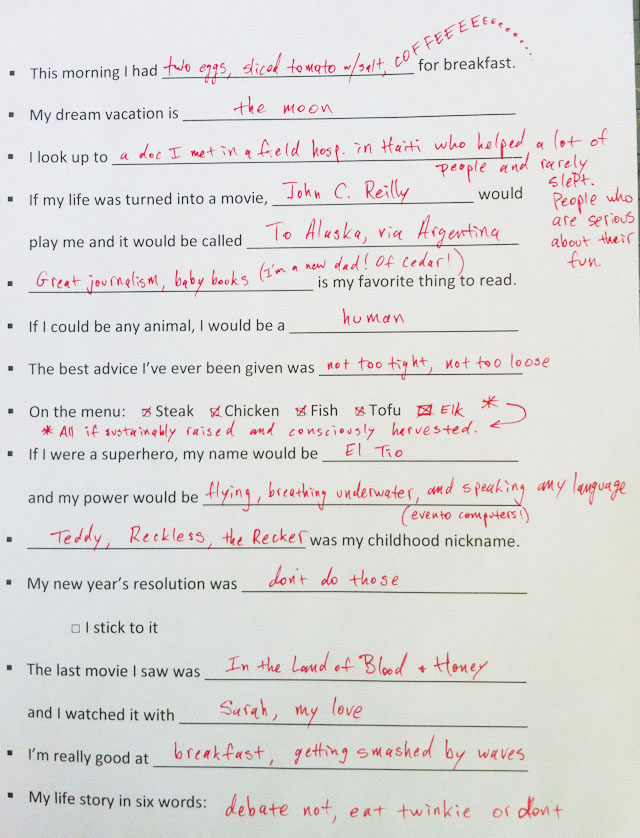 ▪ This morning I had two eggs, sliced tomato w/salt, COFFEEEEEEe....... for breakfast.
▪ My dream vacation is the moon
▪ I look up to a doc I met in a field hosp. in Haiti who helped a lot of
people and rarely
slept.
People who
are serious
about their
fun.
▪ If my life was turned into a movie, John C. Reilly would
play me and it would be called To Alaska, via Argentina
▪ Great journalism, baby books (I'm a new dad! Of Cedar!) is my favorite thing to read.
▪ If I could be any animal, I would be a human
▪ The best advice I've ever been given was not too tight, not too loose
▪ On the menu: ☒ Steak ☒ Chicken ☒ Fish ☒ Tofu ☒ Elk *
* All if sustainably raised and consciously harvested.
▪ If I were a superhero, my name would be El Tio
and my power would be flying, breathing underwater, and speaking any language
(even to computers!)
▪ Teddy, Reckless, the Recker was my childhood nickname.
▪ My new year's resolution was don't do those
☐ I stick to it
▪ The last movie I saw was In the Land of Blood + Honey
and I watched it with Sarah, my love
▪ I'm really good at breakfast, getting smashed by waves
▪ My life story in six words: debate not, eat twinkie or don't